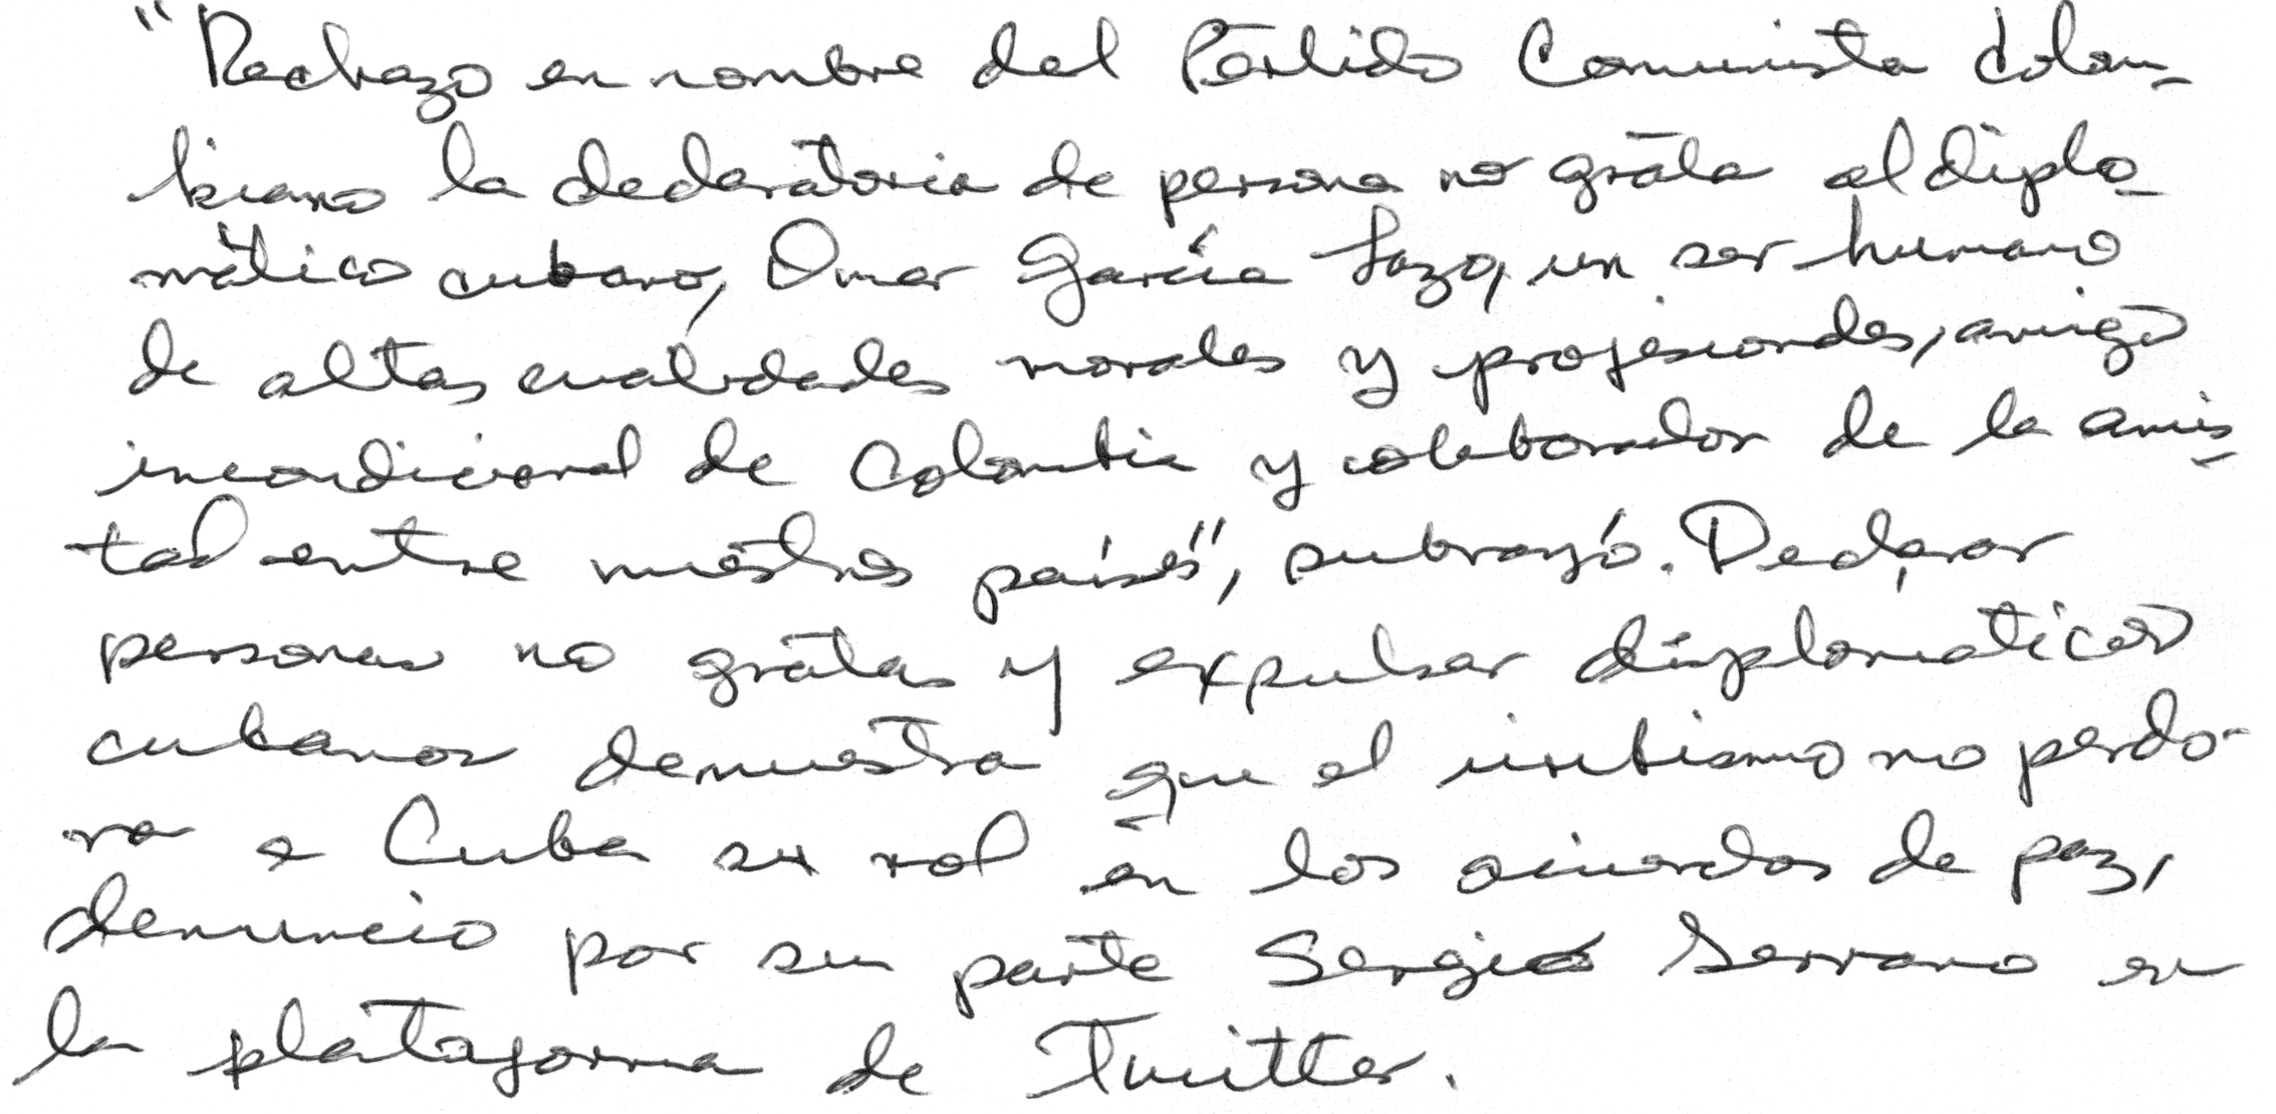 "Rechazo en nombre del Partido Comunista Colom-
biano la declaratoria de persona no grata al diplo-
mático cubano, Omar García Lazo, un ser humano
de altas cualidades morales y profesionales, amigo
incondicional de Colombia y colaborador de la amis-
tad entre nuestros países", subrayó. Declarar
personas no gratas y expulsar diplomáticos
cubanos demuestra que el uribismo no perdo-
na a Cuba su rol en los acuerdos de paz,
denuncio por su parte Sergio Serrano en
la plataforma de Twitter.